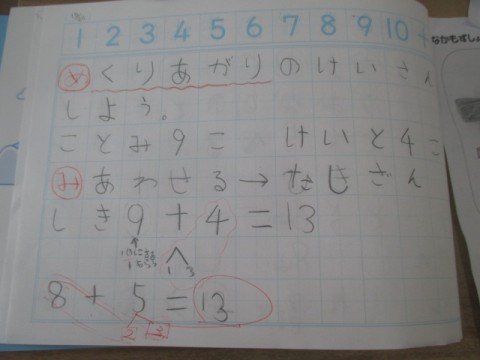 1 2 3 4 5 6 7 8 9 10
なかもずしょ
め くりあがりのけいさん
しよう。
ことみ9こ けいと4こ
み あわせる→たしざん
しき 9+4=13
1 3
8+5=13
2 3